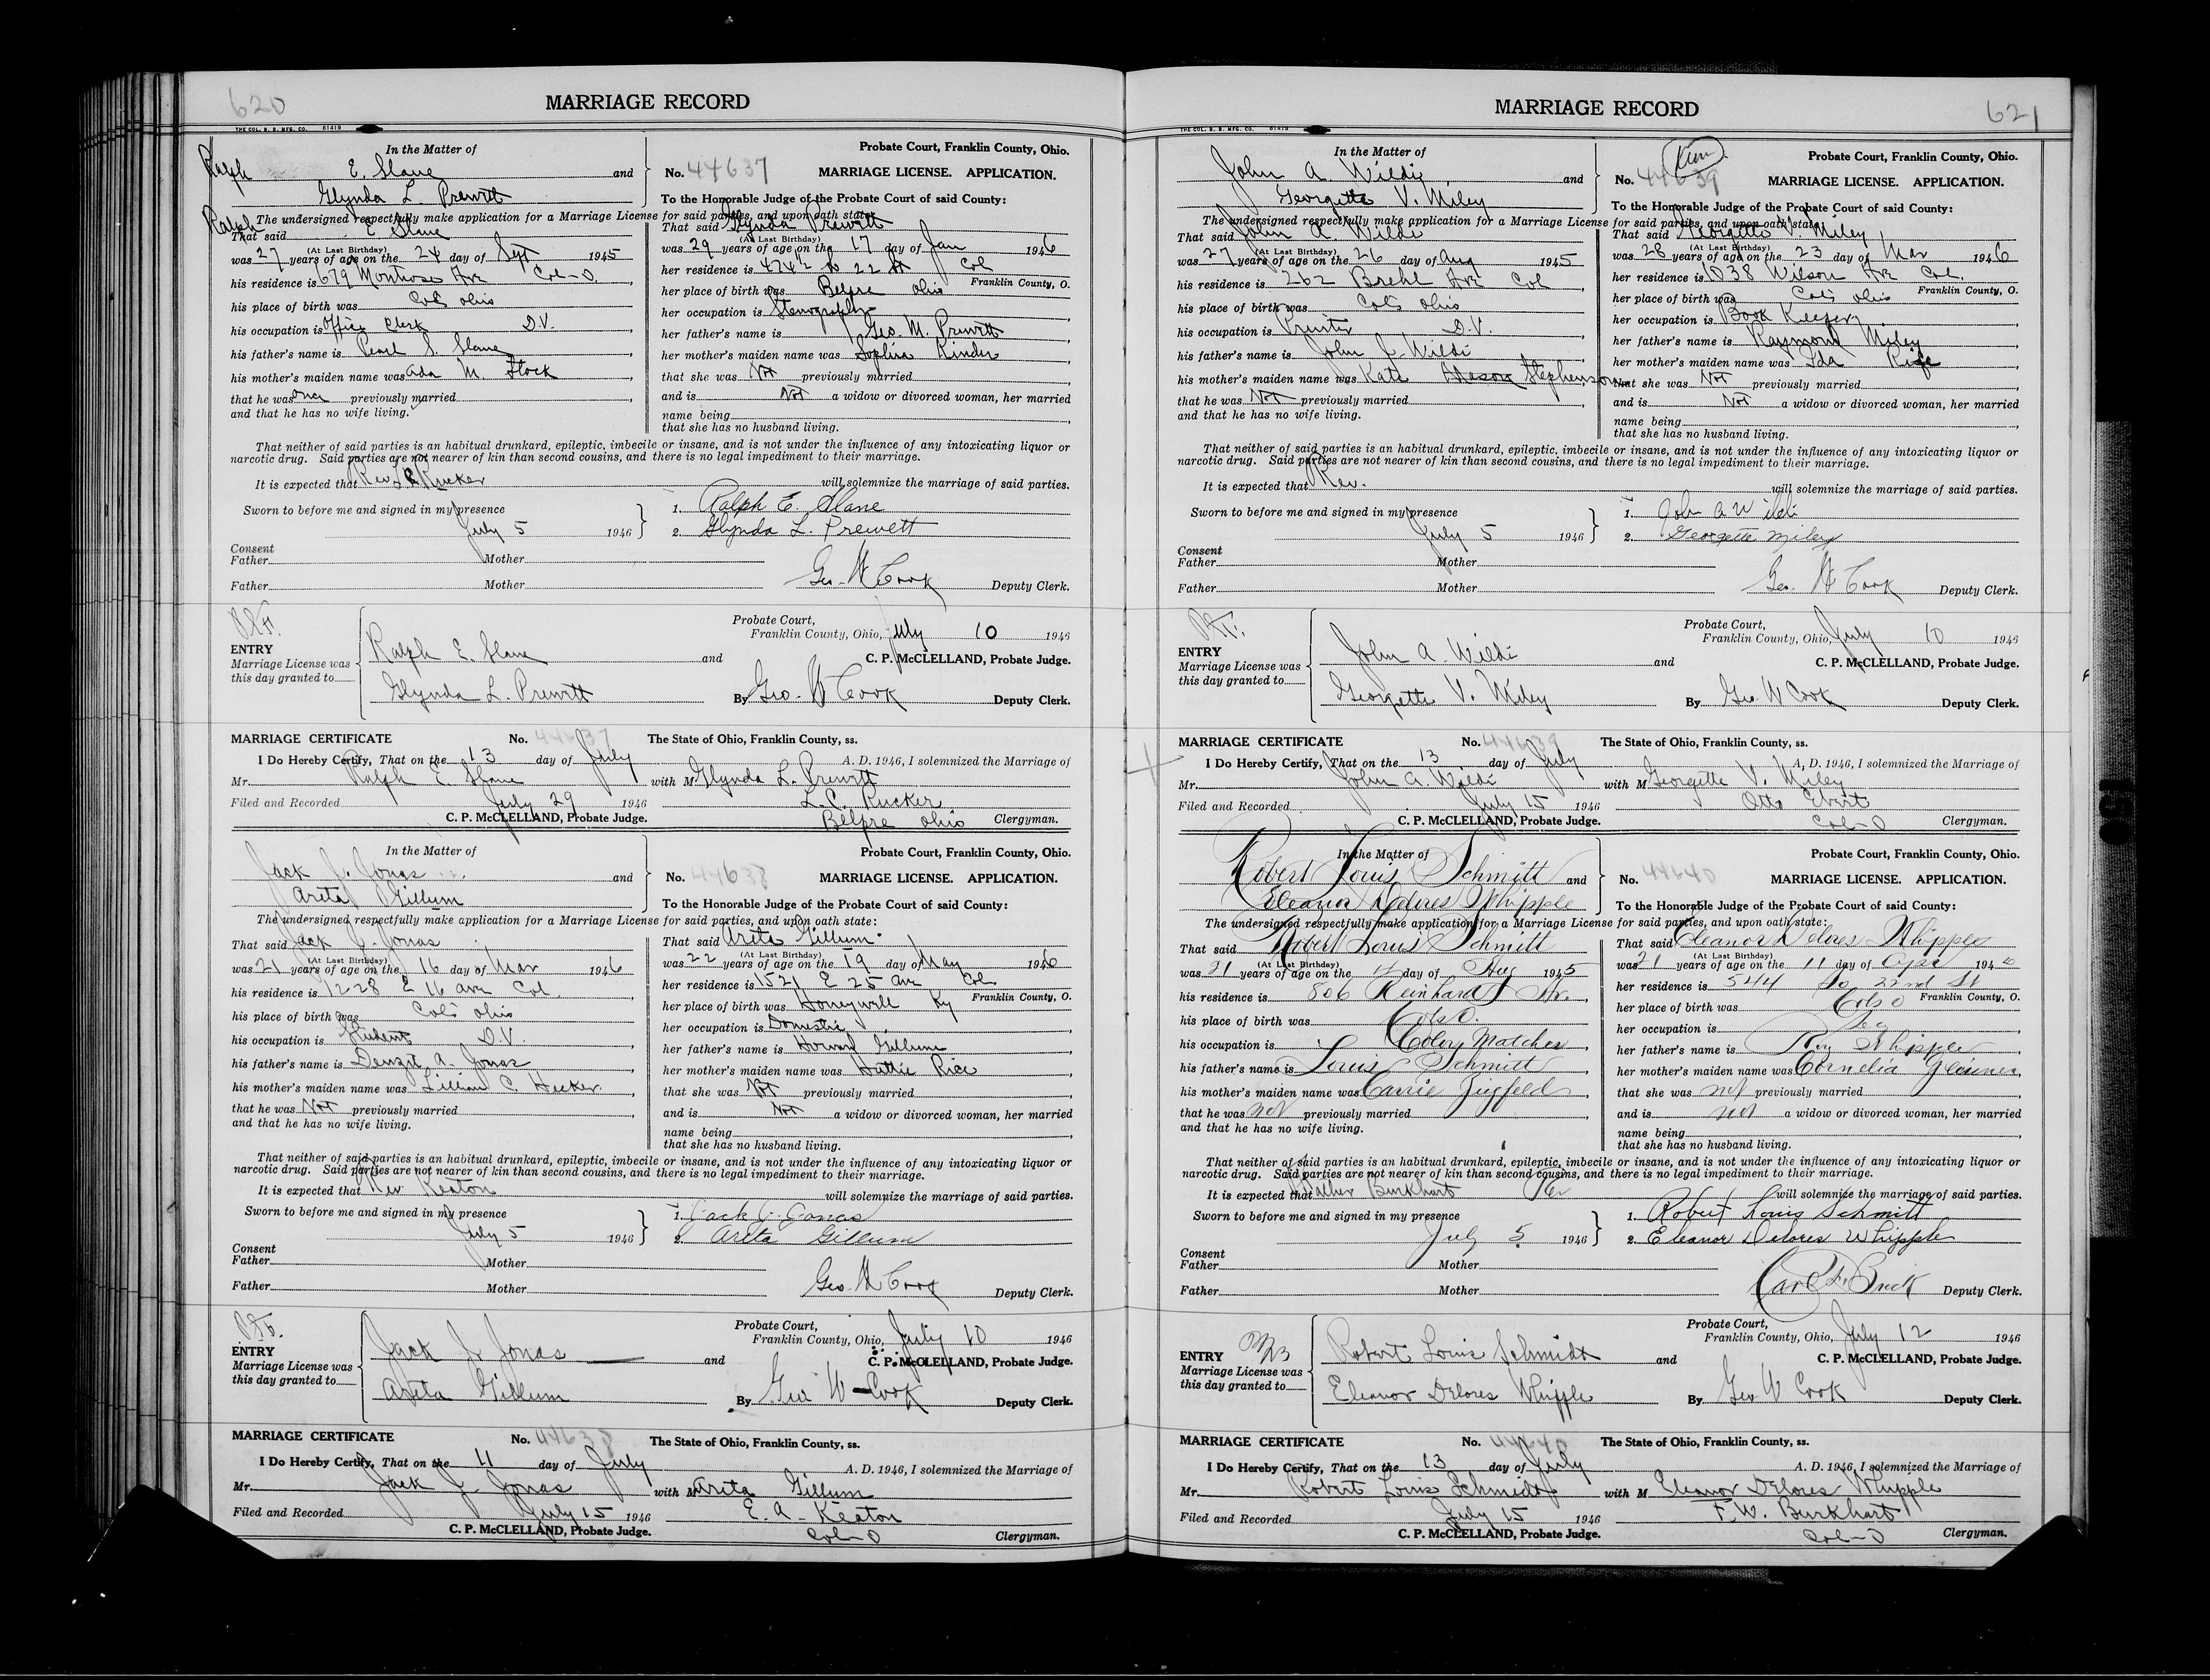 620
MARRIAGE RECORD
THE COL. B. B. MFG. CO. 81419
In the Matter of
Ralph E. Slane and
Glynda L. Prewitt
Probate Court, Franklin County, Ohio.
No. 44637 MARRIAGE LICENSE. APPLICATION.
To the Honorable Judge of the Probate Court of said County:
The undersigned respectfully make application for a Marriage License for said parties, and upon oath state:
Ralph
That said E Slane
(At Last Birthday)
was 27 years of age on the 24 day of Sept 1945
his residence is 679 Montrose Ave Col-O.
his place of birth was Cols Ohio
his occupation is Office Clerk D.V.
his father's name is Pearl S. Slane
his mother's maiden name was Ada M Stock
that he was once previously married
and that he has no wife living.
That said Glynda Prewitt
(At Last Birthday)
was 29 years of age on the 17 day of Jan 1946
her residence is 424½ So 22 St Col
Franklin County, O.
her place of birth was Belpre Ohio
her occupation is Stenographer
her father's name is Geo. M. Prewitt
her mother's maiden name was Sophira Kinder
that she was Not previously married
and is Not a widow or divorced woman, her married
name being
that she has no husband living.
That neither of said parties is an habitual drunkard, epileptic, imbecile or insane, and is not under the influence of any intoxicating liquor or
narcotic drug. Said parties are not nearer of kin than second cousins, and there is no legal impediment to their marriage.
It is expected that Rev L C Rucker will solemnize the marriage of said parties.
Sworn to before me and signed in my presence
July 5 1946
1. Ralph E. Slane
2. Glynda L. Prewett
Consent
Father Mother
Father Mother
Geo. W Cook Deputy Clerk.
ENTRY
Marriage License was
this day granted to
Ralph E. Slane and
Glynda L. Prewitt
Probate Court,
Franklin County, Ohio, July 10 1946
C. P. McCLELLAND, Probate Judge.
By Geo. W Cook Deputy Clerk.
MARRIAGE CERTIFICATE No. 44637 The State of Ohio, Franklin County, ss.
I Do Hereby Certify, That on the 13 day of July A. D. 1946, I solemnized the Marriage of
Mr. Ralph E. Slane with M Glynda L. Prewitt
Filed and Recorded July 29 1946 L. C. Rucker
C. P. McCLELLAND, Probate Judge. Belpre Ohio Clergyman.
In the Matter of
Jack J. Jonas and
Areta Gillum
Probate Court, Franklin County, Ohio.
No. 44638 MARRIAGE LICENSE. APPLICATION.
To the Honorable Judge of the Probate Court of said County:
The undersigned respectfully make application for a Marriage License for said parties, and upon oath state:
That said Jack J. Jonas
(At Last Birthday)
was 21 years of age on the 16 day of Mar 1946
his residence is 1228 E 16 ave Col
his place of birth was Cols Ohio
his occupation is Student D.V.
his father's name is Denzil A. Jonas
his mother's maiden name was Lillian C. Hecker
that he was Not previously married
and that he has no wife living.
That said Areta Gillum
(At Last Birthday)
was 22 years of age on the 19 day of May 1946
her residence is 1521 E 25 ave Col
Franklin County, O.
her place of birth was Honeyville Ky
her occupation is Domestic
her father's name is Howard Gillum
her mother's maiden name was Hattie Rice
that she was Not previously married
and is Not a widow or divorced woman, her married
name being
that she has no husband living.
That neither of said parties is an habitual drunkard, epileptic, imbecile or insane, and is not under the influence of any intoxicating liquor or
narcotic drug. Said parties are not nearer of kin than second cousins, and there is no legal impediment to their marriage.
It is expected that Rev. Keaton will solemnize the marriage of said parties.
Sworn to before me and signed in my presence
July 5 1946
1. Jack J. Jonas
2. Areta Gillum
Consent
Father Mother
Father Mother
Geo. W Cook Deputy Clerk.
ENTRY
Marriage License was
this day granted to
Jack J Jonas and
Areta Gillum
Probate Court,
Franklin County, Ohio, July 10 1946
C. P. McCLELLAND, Probate Judge.
By Geo W Cook Deputy Clerk.
MARRIAGE CERTIFICATE No. 44638 The State of Ohio, Franklin County, ss.
I Do Hereby Certify, That on the 11 day of July A. D. 1946, I solemnized the Marriage of
Mr. Jack J. Jonas with M Areta Gillum
Filed and Recorded July 15 1946 E. A. Keaton
C. P. McCLELLAND, Probate Judge. Col-O Clergyman.
621
MARRIAGE RECORD
THE COL. B. B. MFG. CO. 81419
In the Matter of
John A. Wildi and
Georgette V. Miley
Probate Court, Franklin County, Ohio.
No. 44639 MARRIAGE LICENSE. APPLICATION.
To the Honorable Judge of the Probate Court of said County:
The undersigned respectfully make application for a Marriage License for said parties, and upon oath state:
That said John A. Wildi
(At Last Birthday)
was 27 years of age on the 26 day of Aug 1945
his residence is 262 Brehl Ave Col
his place of birth was Cols Ohio
his occupation is Printer D.V.
his father's name is John J. Wildi
his mother's maiden name was Kate Stephenson
that he was Not previously married
and that he has no wife living.
That said Georgette V. Miley
(At Last Birthday)
was 28 years of age on the 23 day of Mar 1946
her residence is 1038 Wilson Ave Col.
Franklin County, O.
her place of birth was Cols Ohio
her occupation is Book Keeper
her father's name is Raymond Miley
her mother's maiden name was Ida Rife
that she was Not previously married
and is Not a widow or divorced woman, her married
name being
that she has no husband living.
That neither of said parties is an habitual drunkard, epileptic, imbecile or insane, and is not under the influence of any intoxicating liquor or
narcotic drug. Said parties are not nearer of kin than second cousins, and there is no legal impediment to their marriage.
It is expected that Rev. will solemnize the marriage of said parties.
Sworn to before me and signed in my presence
July 5 1946
1. John A Wildi
2. Georgette Miley
Consent
Father Mother
Father Mother
Geo. W Cook Deputy Clerk.
ENTRY
Marriage License was
this day granted to
John A. Wildi and
Georgette V. Miley
Probate Court,
Franklin County, Ohio, July 10 1946
C. P. McCLELLAND, Probate Judge.
By Geo. W Cook Deputy Clerk.
MARRIAGE CERTIFICATE No. 44639 The State of Ohio, Franklin County, ss.
I Do Hereby Certify, That on the 13 day of July A. D. 1946, I solemnized the Marriage of
Mr. John A. Wildi with M Georgette V. Miley
Filed and Recorded July 15 1946 Otto Ebert
C. P. McCLELLAND, Probate Judge. Col-O Clergyman.
In the Matter of
Robert Louis Schmitt and
Eleanor Delores Whipple
Probate Court, Franklin County, Ohio.
No. 44640 MARRIAGE LICENSE. APPLICATION.
To the Honorable Judge of the Probate Court of said County:
The undersigned respectfully make application for a Marriage License for said parties, and upon oath state:
That said Robert Louis Schmitt
(At Last Birthday)
was 21 years of age on the day of Aug 1945
his residence is 806 Reinhard Av.
his place of birth was Cols O.
his occupation is Color Matcher
his father's name is Louis Schmitt
his mother's maiden name was Carrie Ziegfeld
that he was not previously married
and that he has no wife living.
That said Eleanor Delores Whipple
(At Last Birthday)
was 21 years of age on the 11 day of Apr 1946
her residence is 544 So 22nd St
Franklin County, O.
her place of birth was Cols O
her occupation is Sec
her father's name is Roy Whipple
her mother's maiden name was Cornelia
that she was not previously married
and is not a widow or divorced woman, her married
name being
that she has no husband living.
That neither of said parties is an habitual drunkard, epileptic, imbecile or insane, and is not under the influence of any intoxicating liquor or
narcotic drug. Said parties are not nearer of kin than second cousins, and there is no legal impediment to their marriage.
It is expected that Father Burkhart will solemnize the marriage of said parties.
Sworn to before me and signed in my presence
July 5 1946
1. Robert Louis Schmitt
2. Eleanor Delores Whipple
Consent
Father Mother
Father Mother
Deputy Clerk.
ENTRY
Marriage License was
this day granted to
Robert Louis Schmidt and
Eleanor Delores Whipple
Probate Court,
Franklin County, Ohio, July 12 1946
C. P. McCLELLAND, Probate Judge.
By Geo W Cook Deputy Clerk.
MARRIAGE CERTIFICATE No. 44640 The State of Ohio, Franklin County, ss.
I Do Hereby Certify, That on the 13 day of July A. D. 1946, I solemnized the Marriage of
Mr. Robert Louis Schmidt with M Eleanor Delores Whipple
Filed and Recorded July 15 1946 F. W. Burkhart
C. P. McCLELLAND, Probate Judge. Col-O Clergyman.